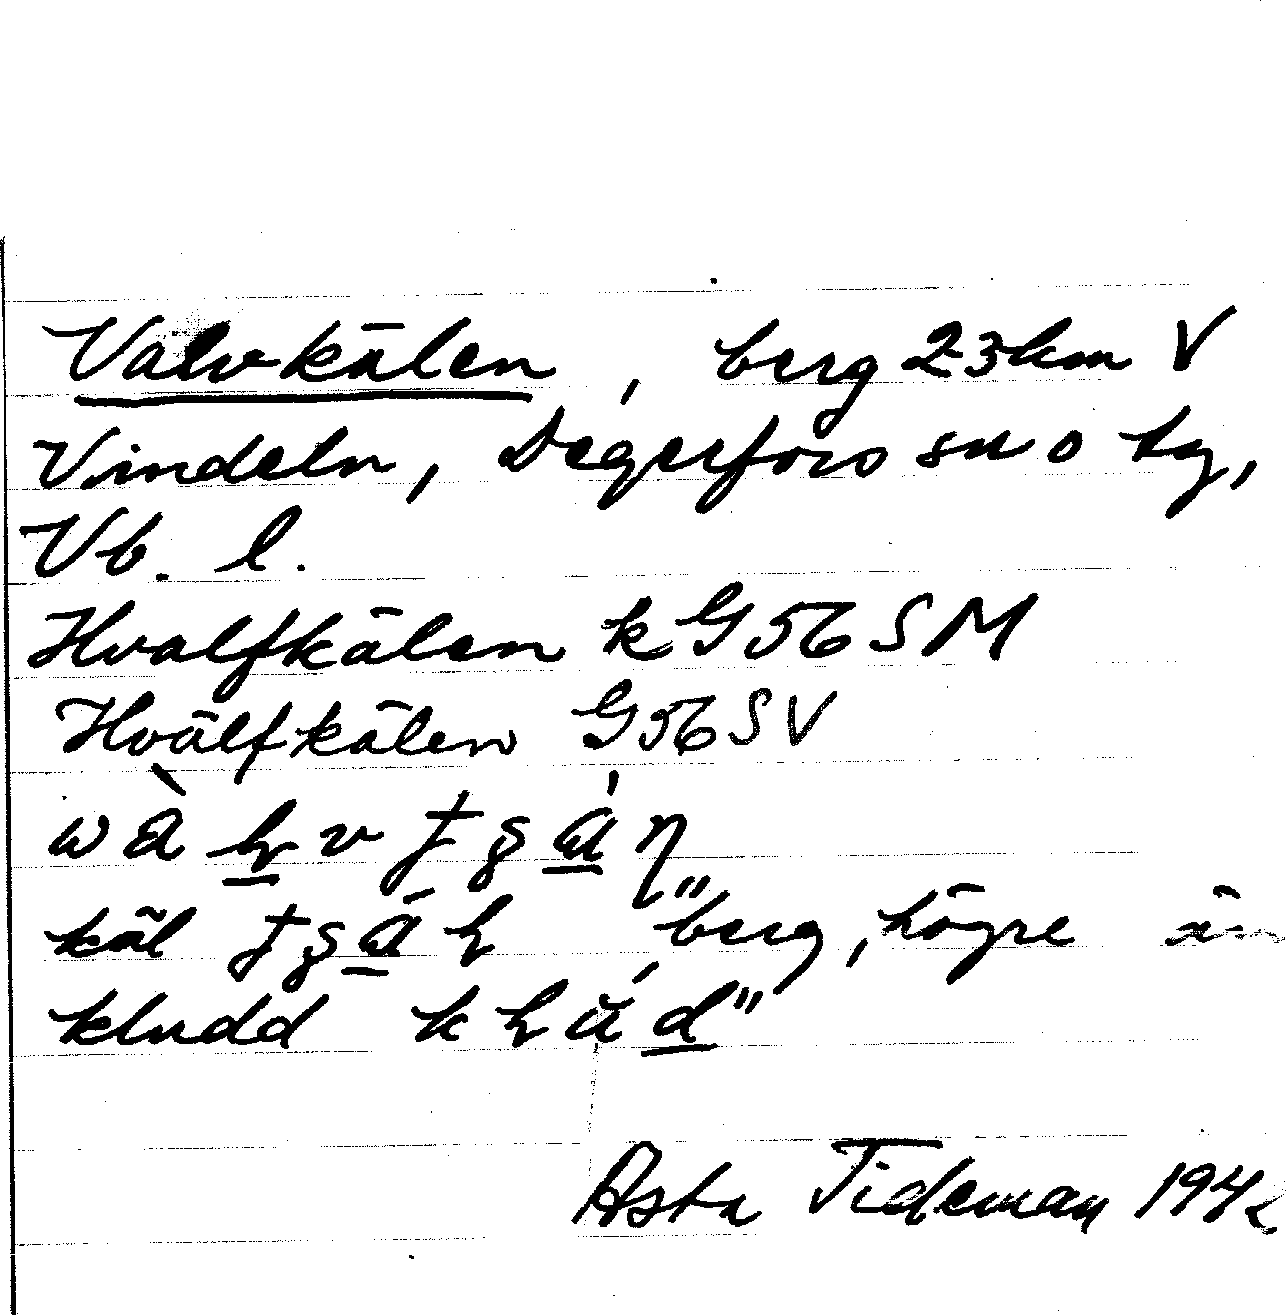 Valvkälen, berg 23 km V
Vindeln, Degerfors sn o tg,
Vb. l.
Hvalfkälen k G56SM
Hvälfkälen G56SV
käl berg, högre än
kludd
Asta Tideman 1942